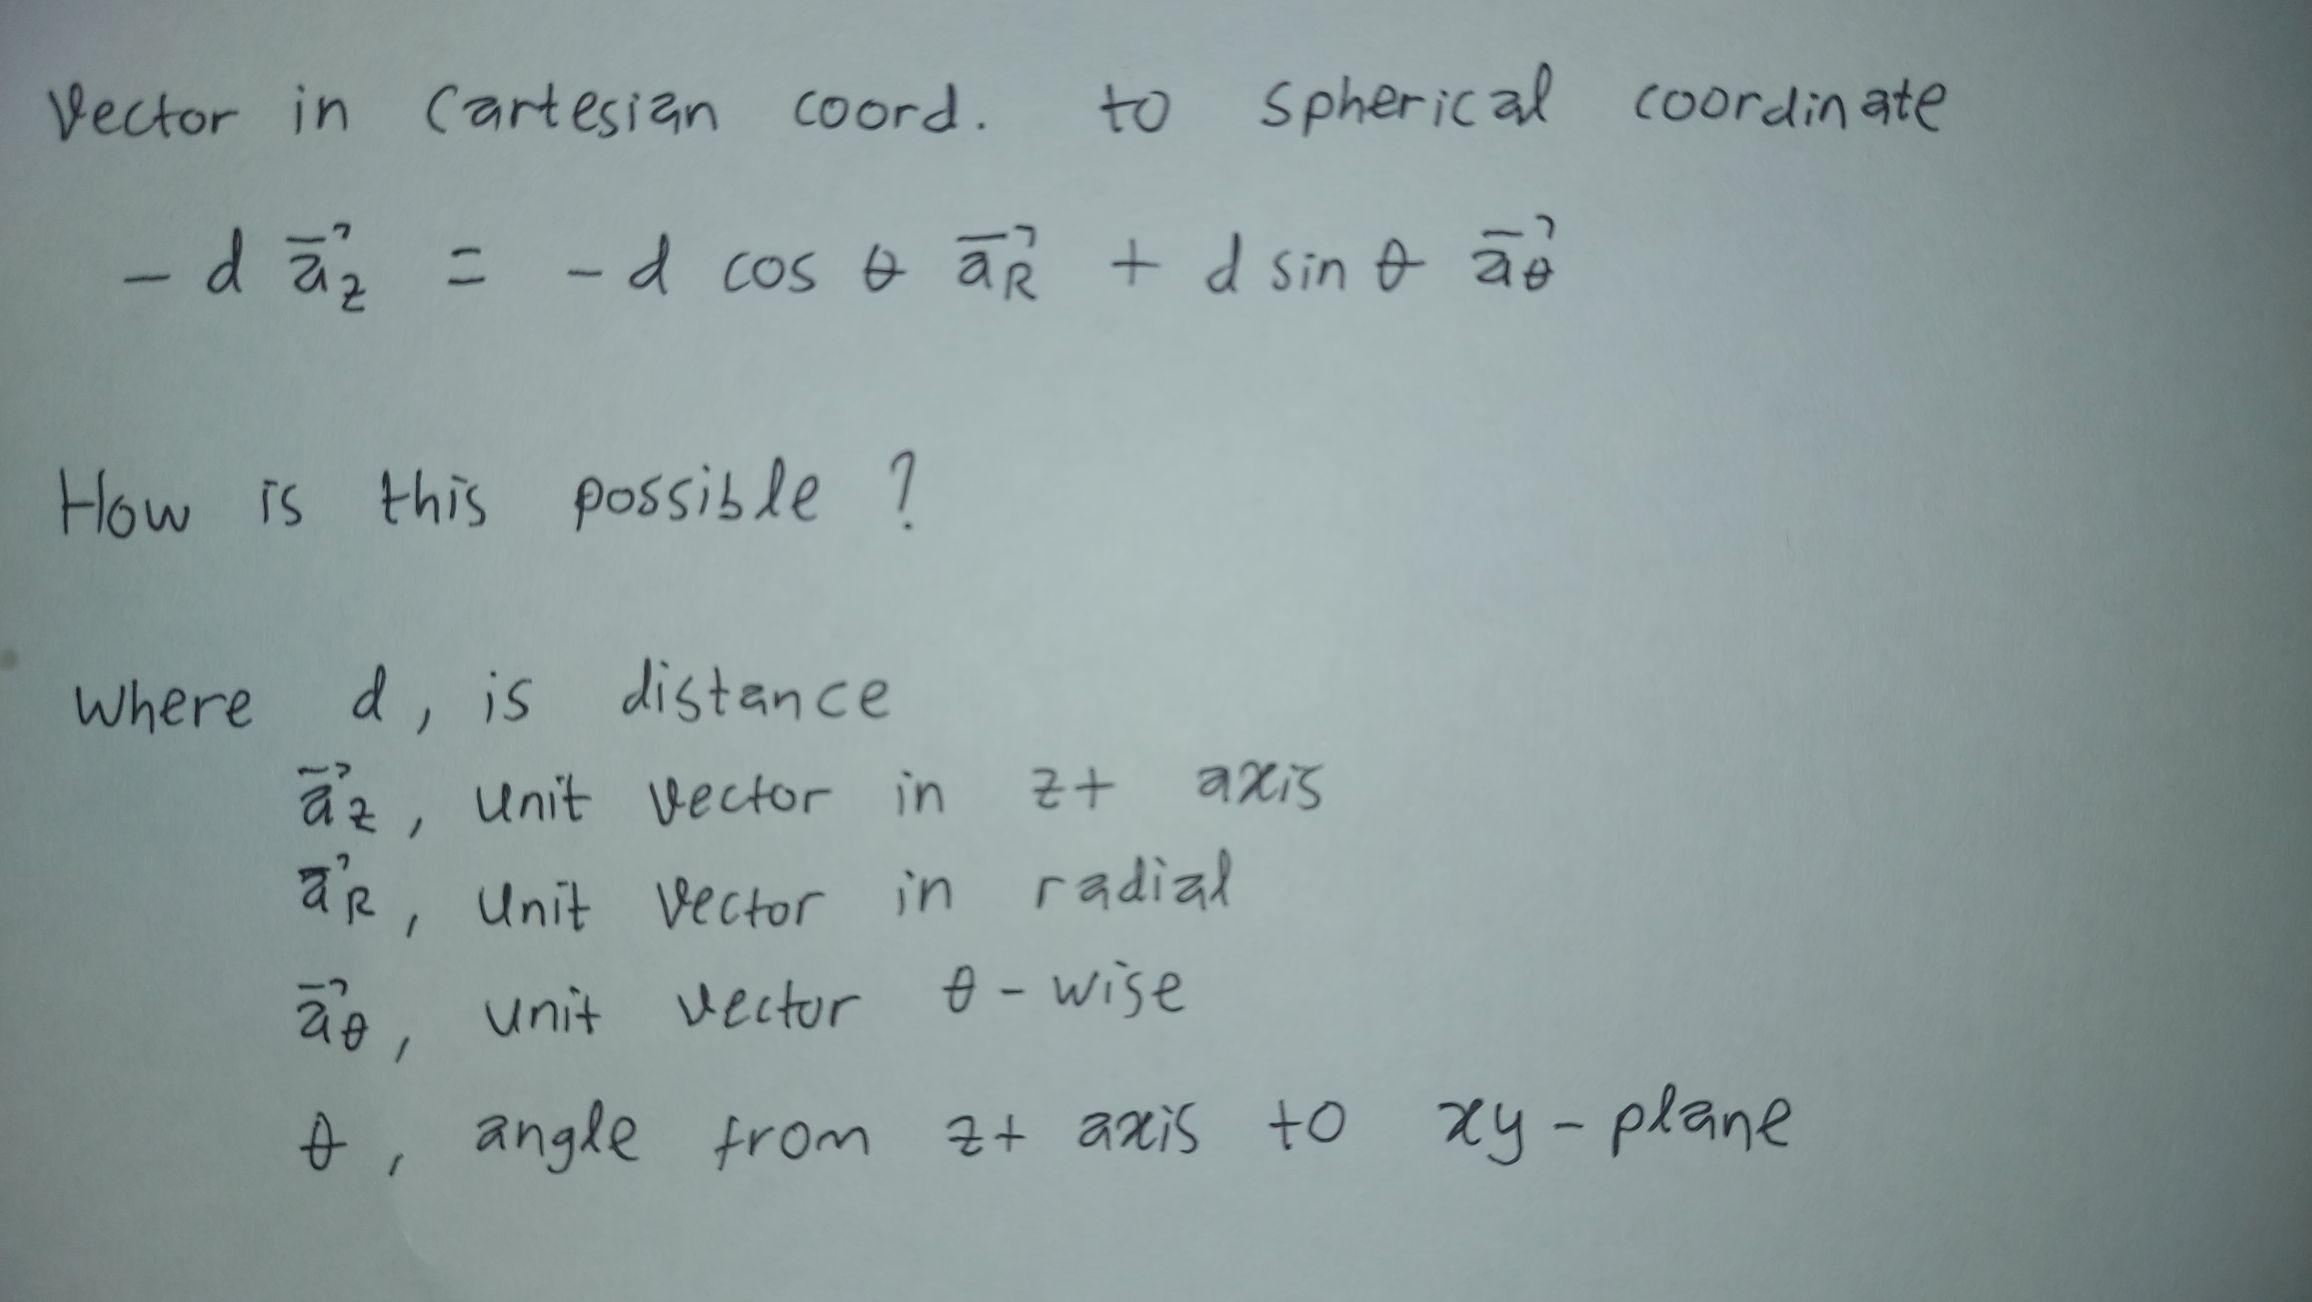 Vector in Cartesian coord. to spherical coordinate
- d a⃗z = - d cos θ a⃗R + d sin θ a⃗θ
How is this possible ?
Where d, is distance
a⃗z, unit vector in z+ axis
a⃗R, unit vector in radial
a⃗θ, unit vector θ-wise
θ, angle from z+ axis to xy-plane